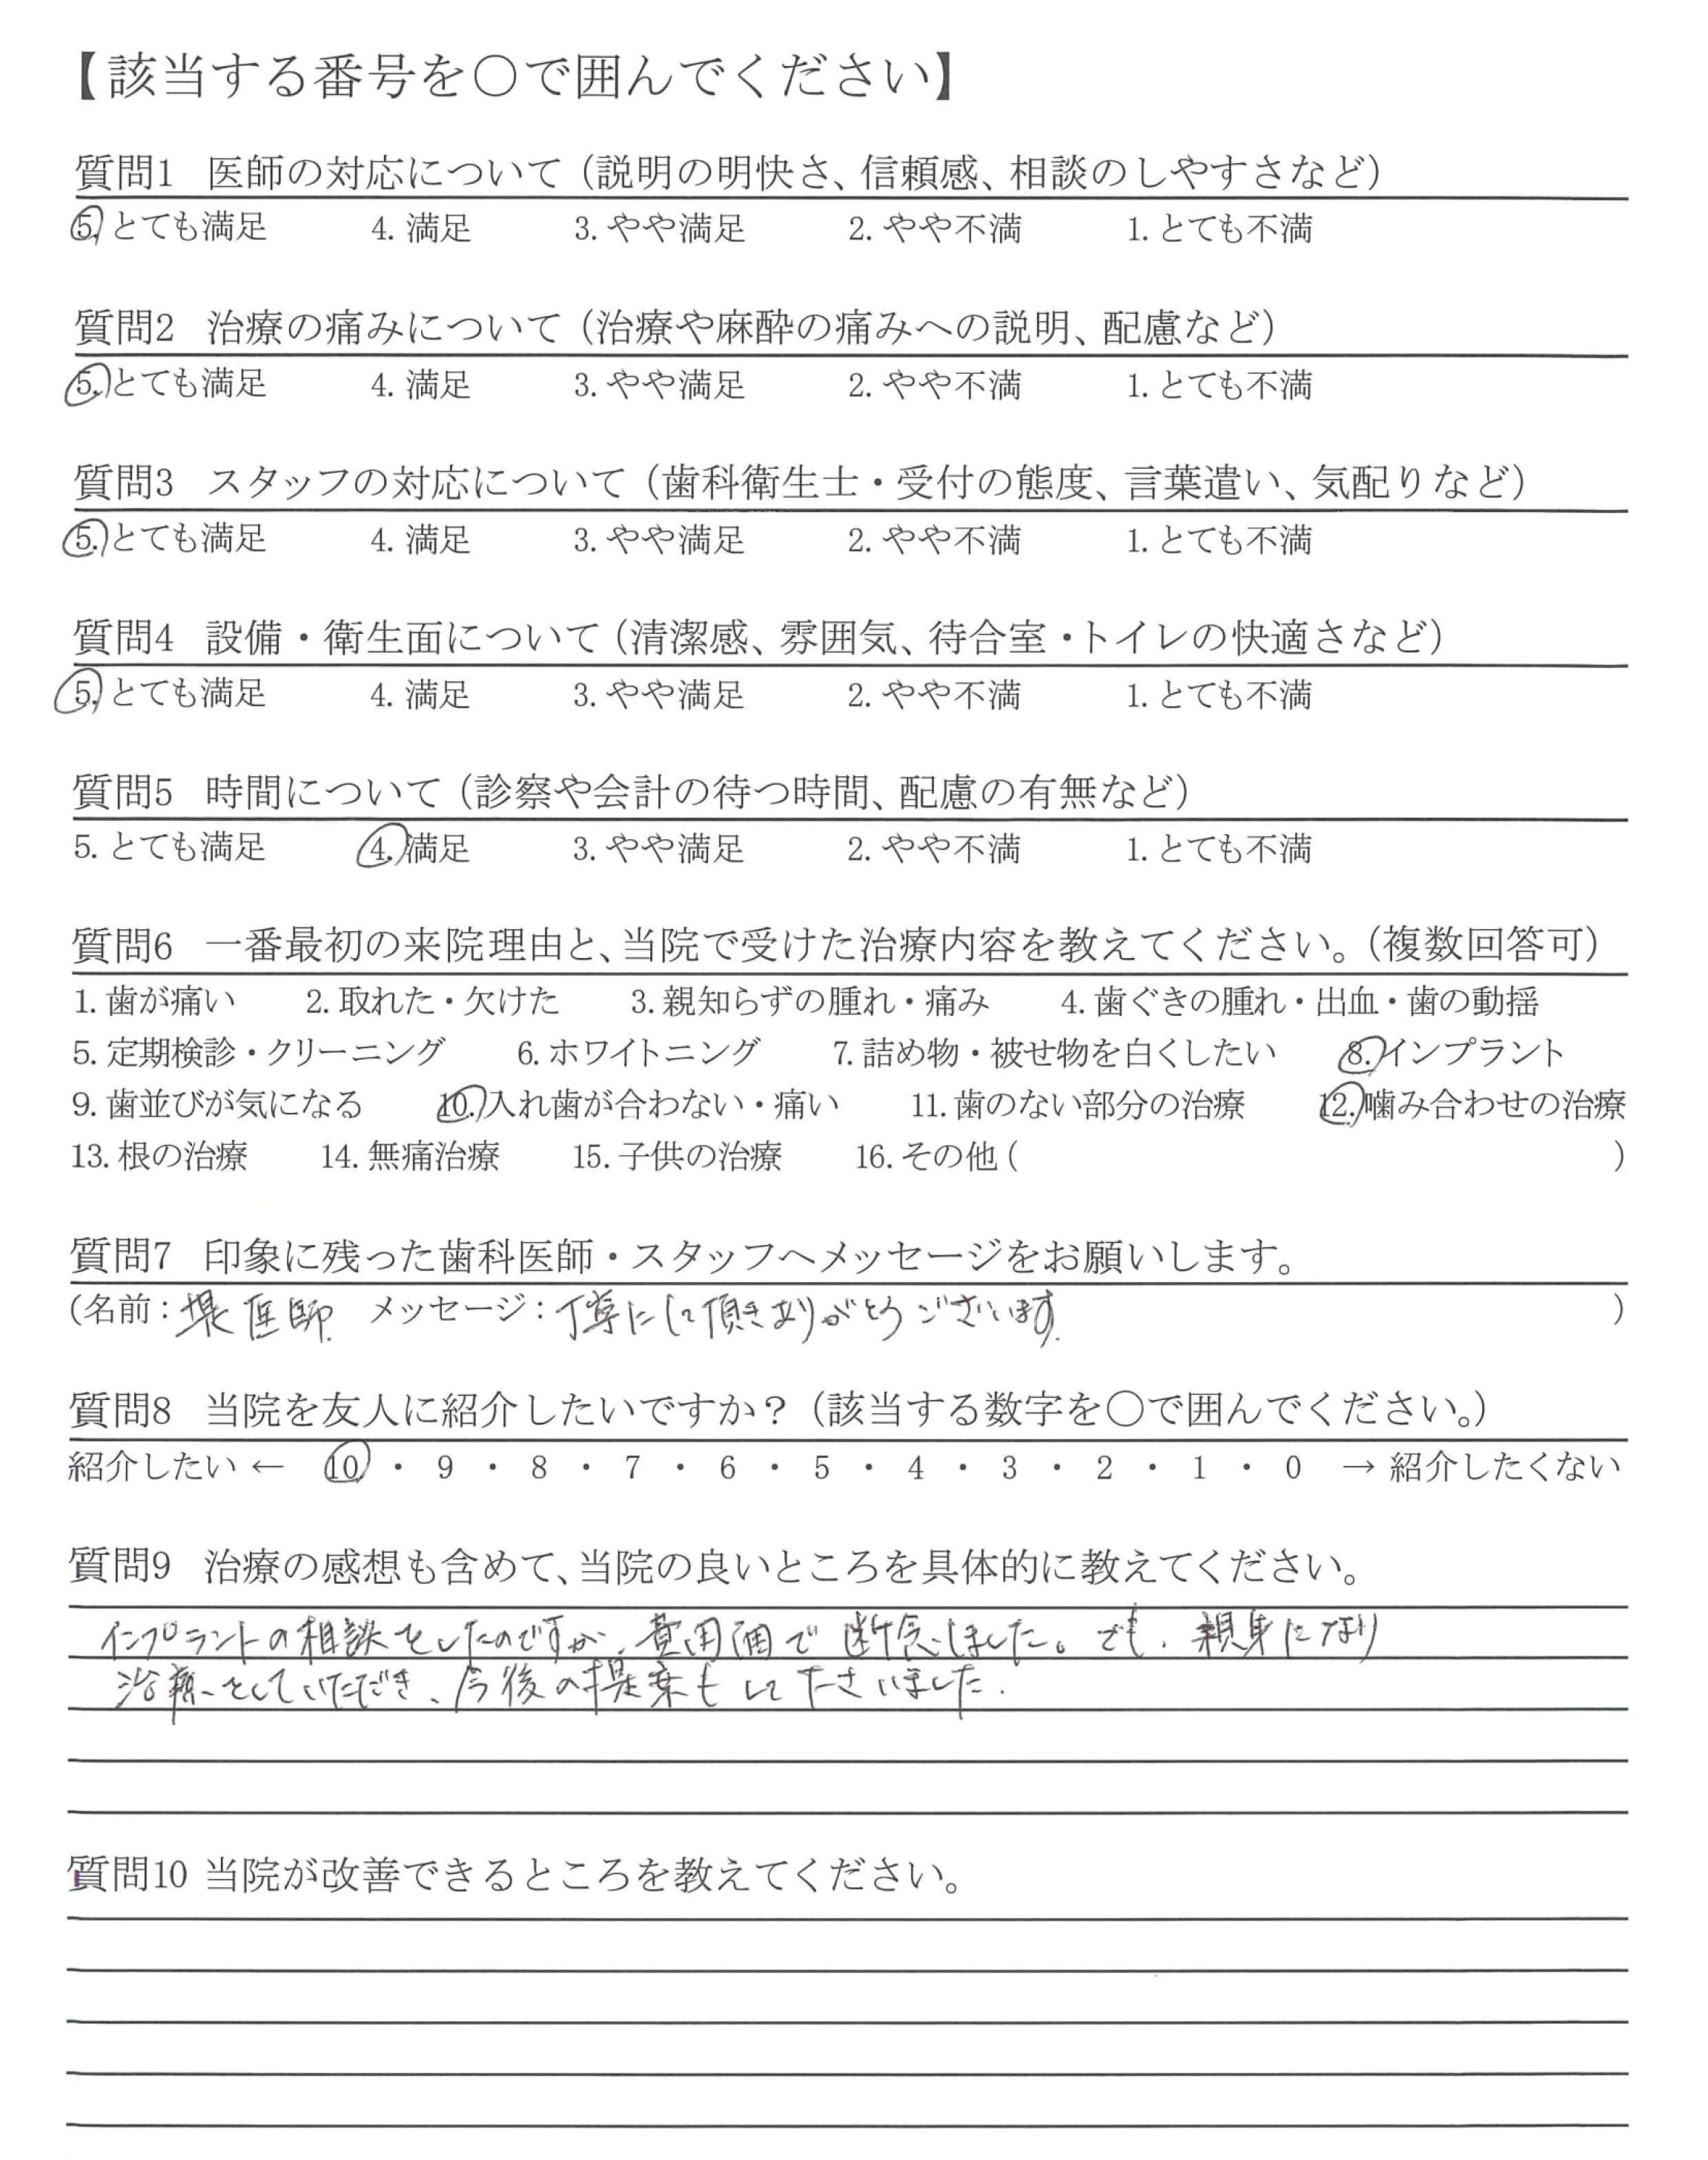 【該当する番号を○で囲んでください】
質問1 医師の対応について（説明の明快さ、信頼感、相談のしやすさなど）
5. とても満足 4. 満足 3. やや満足 2. やや不満 1. とても不満
質問2 治療の痛みについて（治療や麻酔の痛みへの説明、配慮など）
5. とても満足 4. 満足 3. やや満足 2. やや不満 1. とても不満
質問3 スタッフの対応について（歯科衛生士・受付の態度、言葉遣い、気配りなど）
5. とても満足 4. 満足 3. やや満足 2. やや不満 1. とても不満
質問4 設備・衛生面について（清潔感、雰囲気、待合室・トイレの快適さなど）
5. とても満足 4. 満足 3. やや満足 2. やや不満 1. とても不満
質問5 時間について（診察や会計の待つ時間、配慮の有無など）
5. とても満足 4. 満足 3. やや満足 2. やや不満 1. とても不満
質問6 一番最初の来院理由と、当院で受けた治療内容を教えてください。（複数回答可）
1. 歯が痛い 2. 取れた・欠けた 3. 親知らずの腫れ・痛み 4. 歯ぐきの腫れ・出血・歯の動揺
5. 定期検診・クリーニング 6. ホワイトニング 7. 詰め物・被せ物を白くしたい 8. インプラント
9. 歯並びが気になる 10. 入れ歯が合わない・痛い 11. 歯のない部分の治療 12. 噛み合わせの治療
13. 根の治療 14. 無痛治療 15. 子供の治療 16. その他（ ）
質問7 印象に残った歯科医師・スタッフへメッセージをお願いします。
（名前：堤医師 メッセージ：丁寧にして頂きありがとうございます. ）
質問8 当院を友人に紹介したいですか？（該当する数字を○で囲んでください。）
紹介したい ← 10 ・ 9 ・ 8 ・ 7 ・ 6 ・ 5 ・ 4 ・ 3 ・ 2 ・ 1 ・ 0 → 紹介したくない
質問9 治療の感想も含めて、当院の良いところを具体的に教えてください。
インプラントの相談をしたのですが、費用面で断念しました。でも、親身になり
治療をしていただき、今後の提案もして下さいました.
質問10 当院が改善できるところを教えてください。